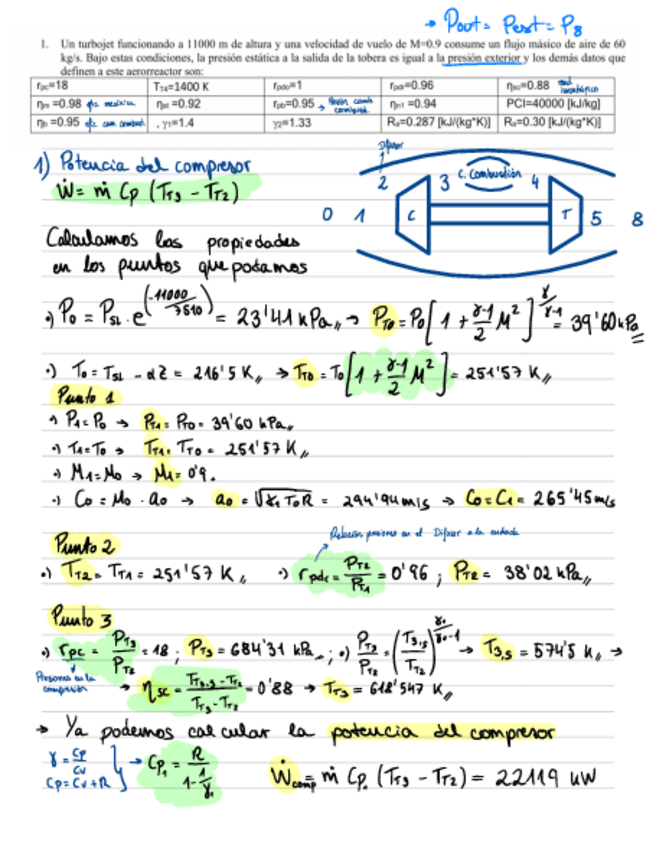 → Pout = Pext = P8
1. Un turbojet funcionando a 11000 m de altura y una velocidad de vuelo de M=0.9 consume un flujo másico de aire de 60
kg/s. Bajo estas condiciones, la presión estática a la salida de la tobera es igual a la presión exterior y los demás datos que
definen a este aerorreactor son:
rpc=18 TT4=1400 K rpdo=1 rpdi=0.96 ηsc=0.88
ηm =0.98 efic mecánica ηst =0.92 rpb=0.95 → ηn1 =0.94 PCI=40000 [kJ/kg]
ηb =0.95 γ1=1.4 γ2=1.33 Ra=0.287 [kJ/(kg*K)] Ra=0.30 [kJ/(kg*K)]
1) Potencia del compresor
Ẇ = ṁ Cp (TT3 - TT2)
Difusor
1 2 3 C. Combustión 4
0 1 C T 5 8
Calculamos las propiedades
en los puntos que podamos
•) P0 = PSL · e^(-11000/7510) = 23'41 kPa,, → PT0 = P0[1 + γ-1/2 M²]^γ/γ-1 = 39'60 kPa
•) T0 = TSL - αz = 216'5 K,, → TT0 = T0[1 + γ-1/2 M²] = 251'57 K,,
Punto 1
•) P1 = P0 → PT1 = PT0 = 39'60 kPa,,
•) T1 = T0 → TT1 = TT0 = 251'57 K,,
•) M1 = M0 → M1 = 0'9.
•) C0 = M0 · a0 → a0 = √γ1 T0 R = 294'94 m/s → C0 = C1 = 265'45 m/s
Relación presiones en el Difusor a la entrada
Punto 2
•) TT2 = TT1 = 251'57 K,, •) rpdc = PT2/PT1 = 0'96 ; PT2 = 38'02 kPa,,
Punto 3
•) rpc = PT3/PT2 = 18 ; PT3 = 684'31 kPa ; •) PT3/PT2 = (T3,s/TT2)^γ/γ-1 → T3,s = 574'5 K,, →
Presiones en la
compresión → ηsc = TT3,s - TT2/TT3 - TT2 = 0'88 → TT3 = 618'547 K,,
→ Ya podemos calcular la potencia del compresor
γ = Cp/Cv
Cp = Cv + R } → Cp1 = R/1 - 1/γ1 Ẇcomp = ṁ Cp. (TT3 - TT2) = 22119 kW